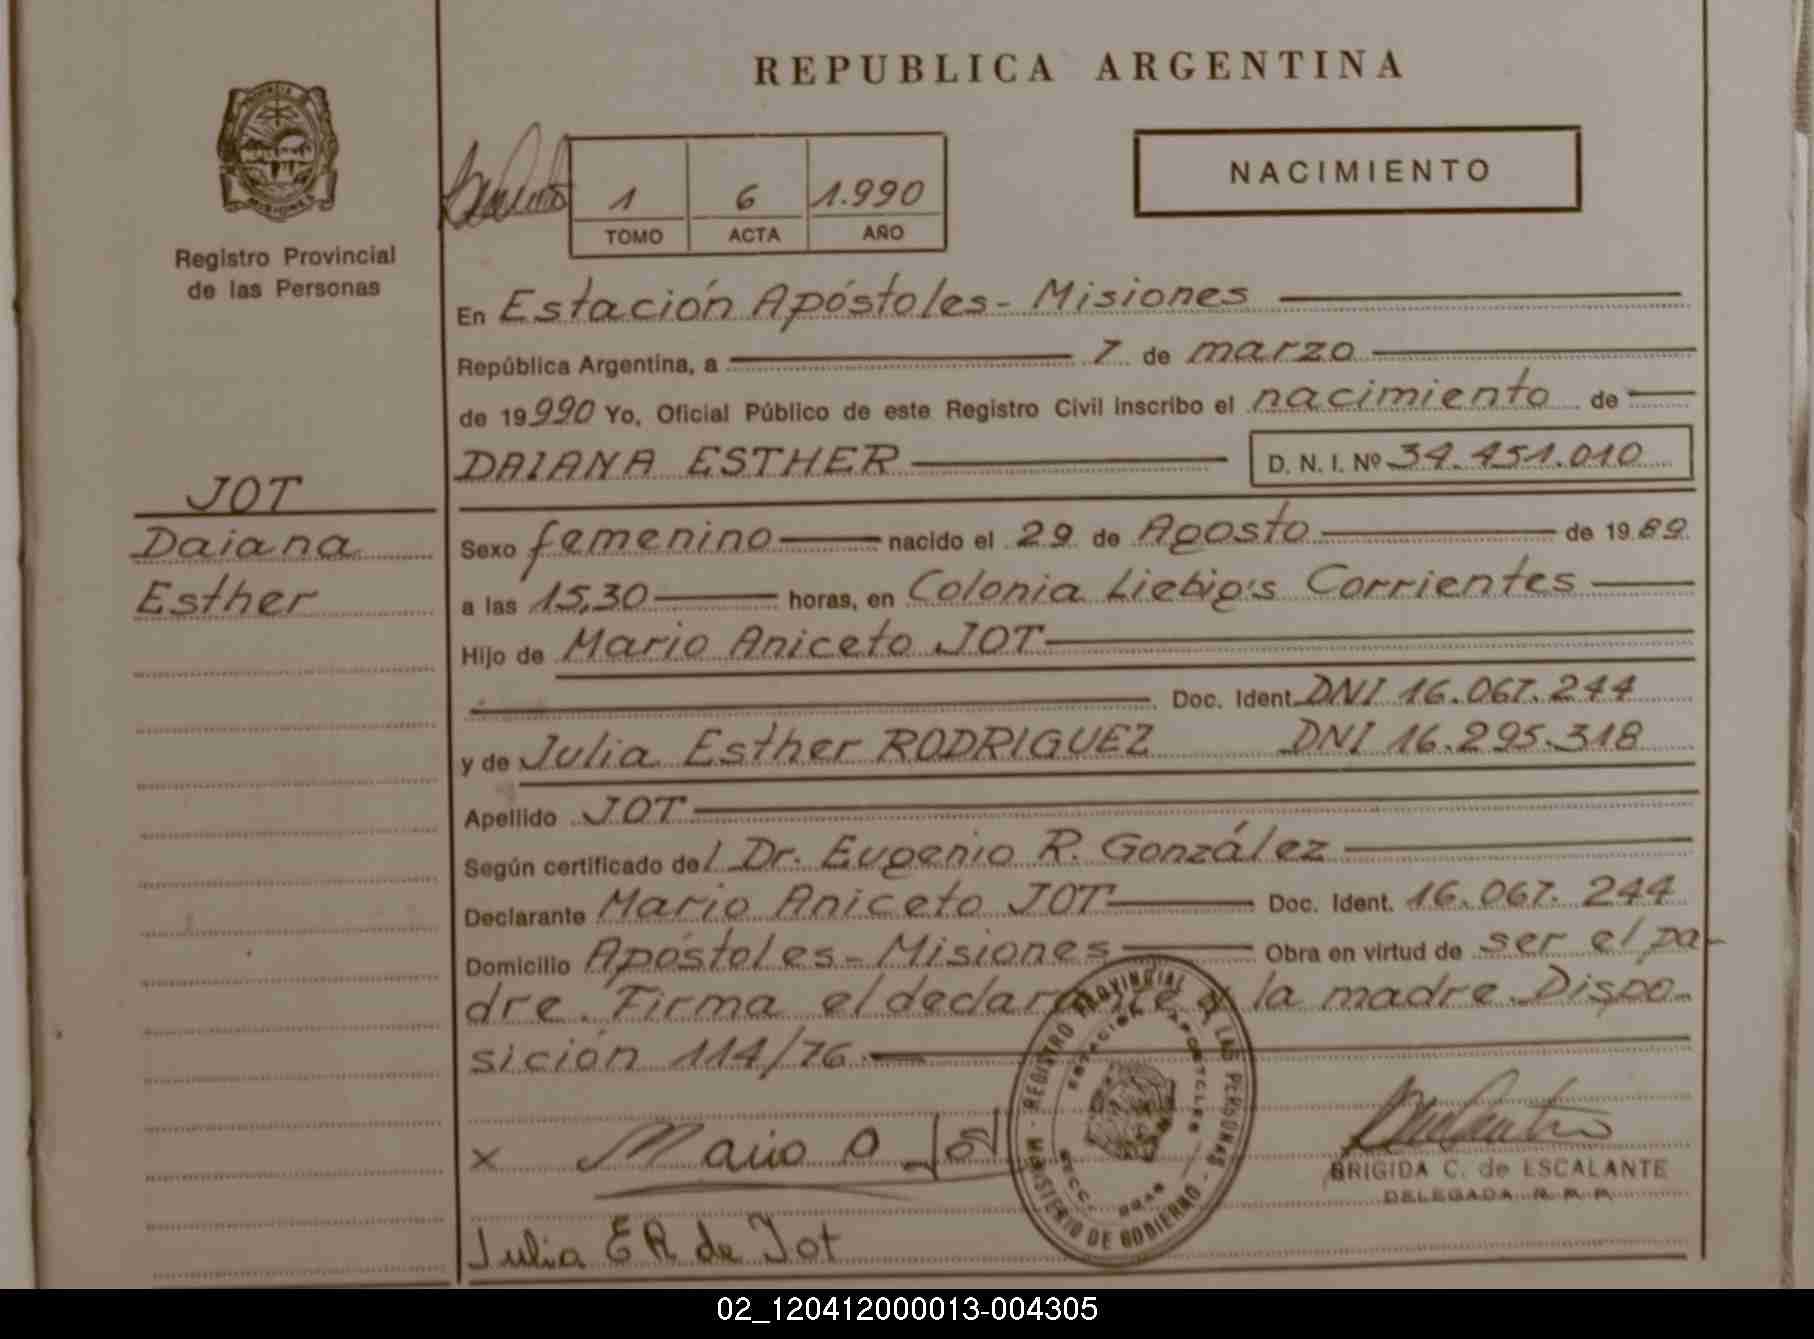 REPUBLICA ARGENTINA
NACIMIENTO
1 6 1.990
TOMO ACTA AÑO
PROVINCIA DE
MISIONES
Registro Provincial
de las Personas
En Estación Apóstoles - Misiones
República Argentina, a 7 de marzo
de 19990 Yo, Oficial Público de este Registro Civil inscribo el nacimiento de
DAIANA ESTHER D. N. I. Nº 34.451.010
JOT
Daiana
Esther
Sexo femenino nacido el 29 de Agosto de 1989.
a las 15,30 horas, en Colonia Liebig's Corrientes
Hijo de Mario Aniceto JOT
Doc. Ident. DNI 16.067.244
y de Julia Esther RODRIGUEZ DNI 16.295.318
Apellido JOT
Según certificado del Dr. Eugenio R. González
Declarante Mario Aniceto JOT Doc. Ident. 16.067.244
Domicilio Apóstoles - Misiones Obra en virtud de ser el pa-
dre. Firma el declarante y la madre. Dispo-
sición 114/76
x Mario A Jot
Julia ER de Jot
REGISTRO PROVINCIAL DE LAS PERSONAS
MINISTERIO DE GOBIERNO
ESTACION APOSTOLES
BRIGIDA C. de ESCALANTE
DELEGADA R.P.P.
02_120412000013-004305